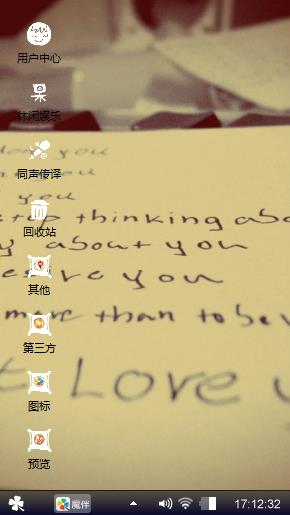 用户中心
休闲娱乐
同声传译
回收站
其他
第三方
图标
预览
you
you
you
thinking
about you
you
more than to be
Love
魔伴
17:12:32